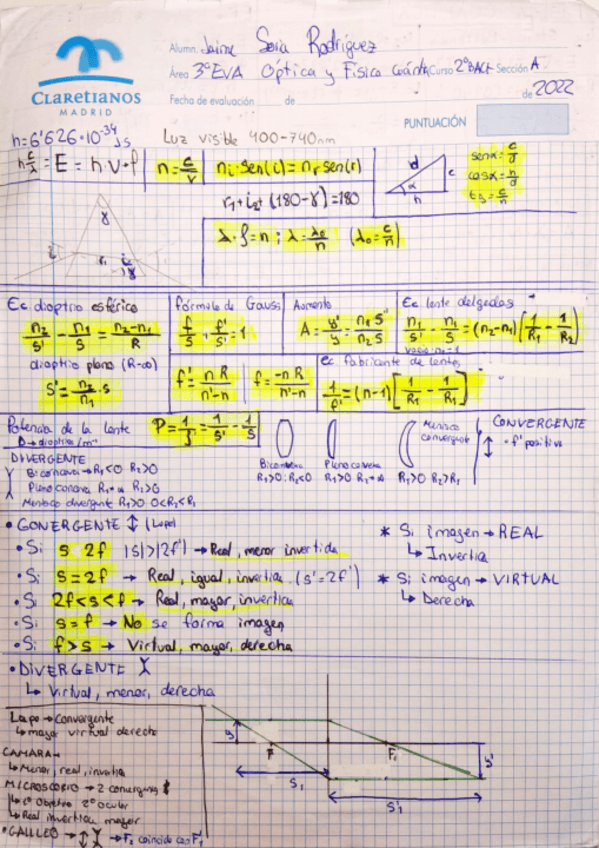 Alumn. Jaime Soria Rodríguez
Área 3ªEVA Óptica y Física Cuánt. Curso 2ºBACH Sección A
Fecha de evaluación de de 2022
CLARETIANOS
MADRID
PUNTUACIÓN
h=6'626·10⁻³⁴ Js Luz visible 400-740nm
h c/λ = E = h·ν·f
n = c/v
ni·sen(i) = nr·sen(r)
r₁+i₂+(180-γ)=180
λ·f=n ; λ=λ₀/n (λ₀=c/n)
d c α h
senα=c/d
cosα=h/d
tg=c/h
γ
Ec dioptrio esférico
n₂/s' - n₁/s = n₂-n₁/R
dioptrio plano (R→∞)
s' = n₂/n₁ · s
fórmula de Gauss
f/s + f'/s' = 1
Aumento
A = y'/y = n₁ s'/n₂ s
Ec lente delgadas
n₁/s' - n₁/s = (n₂-n₁) (1/R₁ - 1/R₂)
vacío n₁=1
f' = n R/n'-n
f = -n R/n'-n
Ec fabricante de lentes
1/f' = (n-1) [1/R₁ - 1/R₁]
Potencia de la lente
D → dioptría/m⁻¹
P = 1/f' = 1/s' - 1/s
Biconvexa
R₁>0 ; R₂<0
Plano convexa
R₁>0 R₂=∞
Menisco convergente
R₁>0 R₂>R₁
CONVERGENTE
· f' positiva
DIVERGENTE
Bicóncava → R₁<0 R₂>0
Plano concava R₁=∞ R₂>0
Menisco divergente R₁>0 0<R₂<R₁
• CONVERGENTE (Lupa)
• Si s 2f |s|>|2f'| → Real, menor invertida
• Si s = 2f → Real, igual, invertia (s'=2f')
• Si 2f<s<f → Real, mayor, invertica
• Si s = f → No se forma imagen
• Si f > s → Virtual, mayor, derecha
* Si imagen → REAL
↳ Invertia
* Si imagen → VIRTUAL
↳ Derecha
• DIVERGENTE
↳ Virtual, menor, derecha
Lupa → Convergente
↳ mayor virtual derecha
CAMARA
↳ Menor, real, invertia
MICROSCOPIO → 2 converging
↳ 1º Objetivo 2º ocular
↳ Real invertica mayor
• GALILEO → F₂ coincide con F₁'
y F F₁ y'
S₁
S'₁